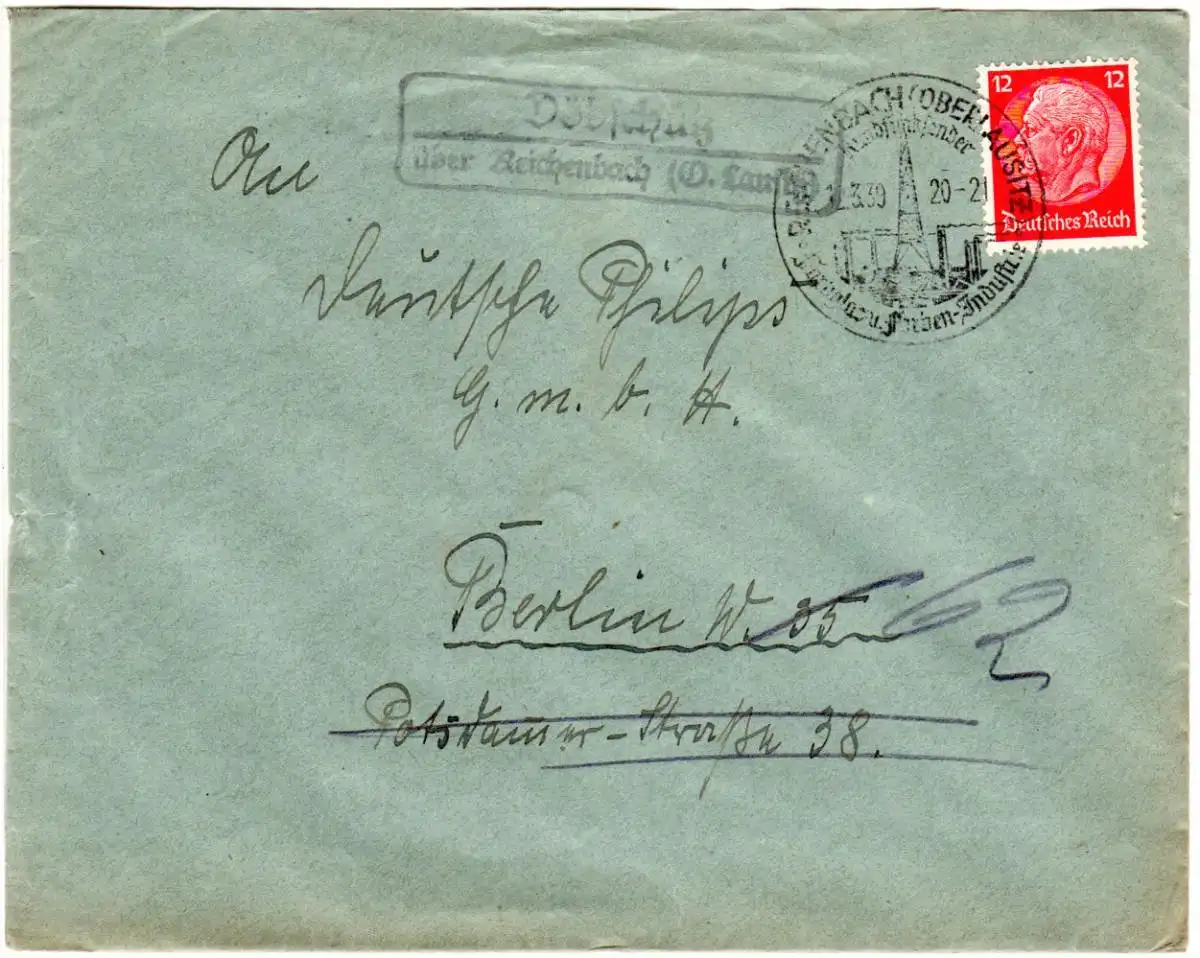 Döbschütz
über Reichenbach (O. Lausitz)
REICHENBACH (OBERLAUSITZ)
Rundfunksender
12.3.39 20-21
Farben-Industrie
12 12
Deutsches Reich
An
Deutsche Philips
G. m. b. H.
Berlin W. 35 62
Potsdamer-Straße 38.